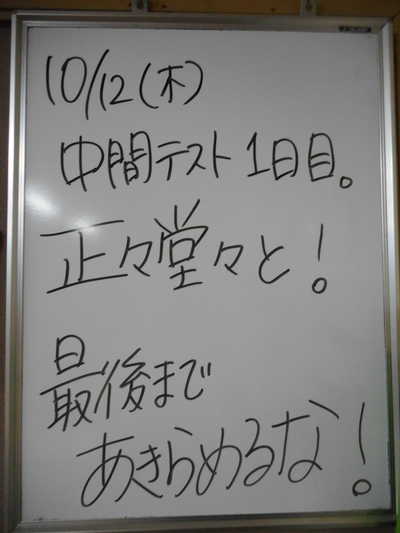 10/12(木)
中間テスト 1日目。
正々堂々と!
最後まで
あきらめるな!